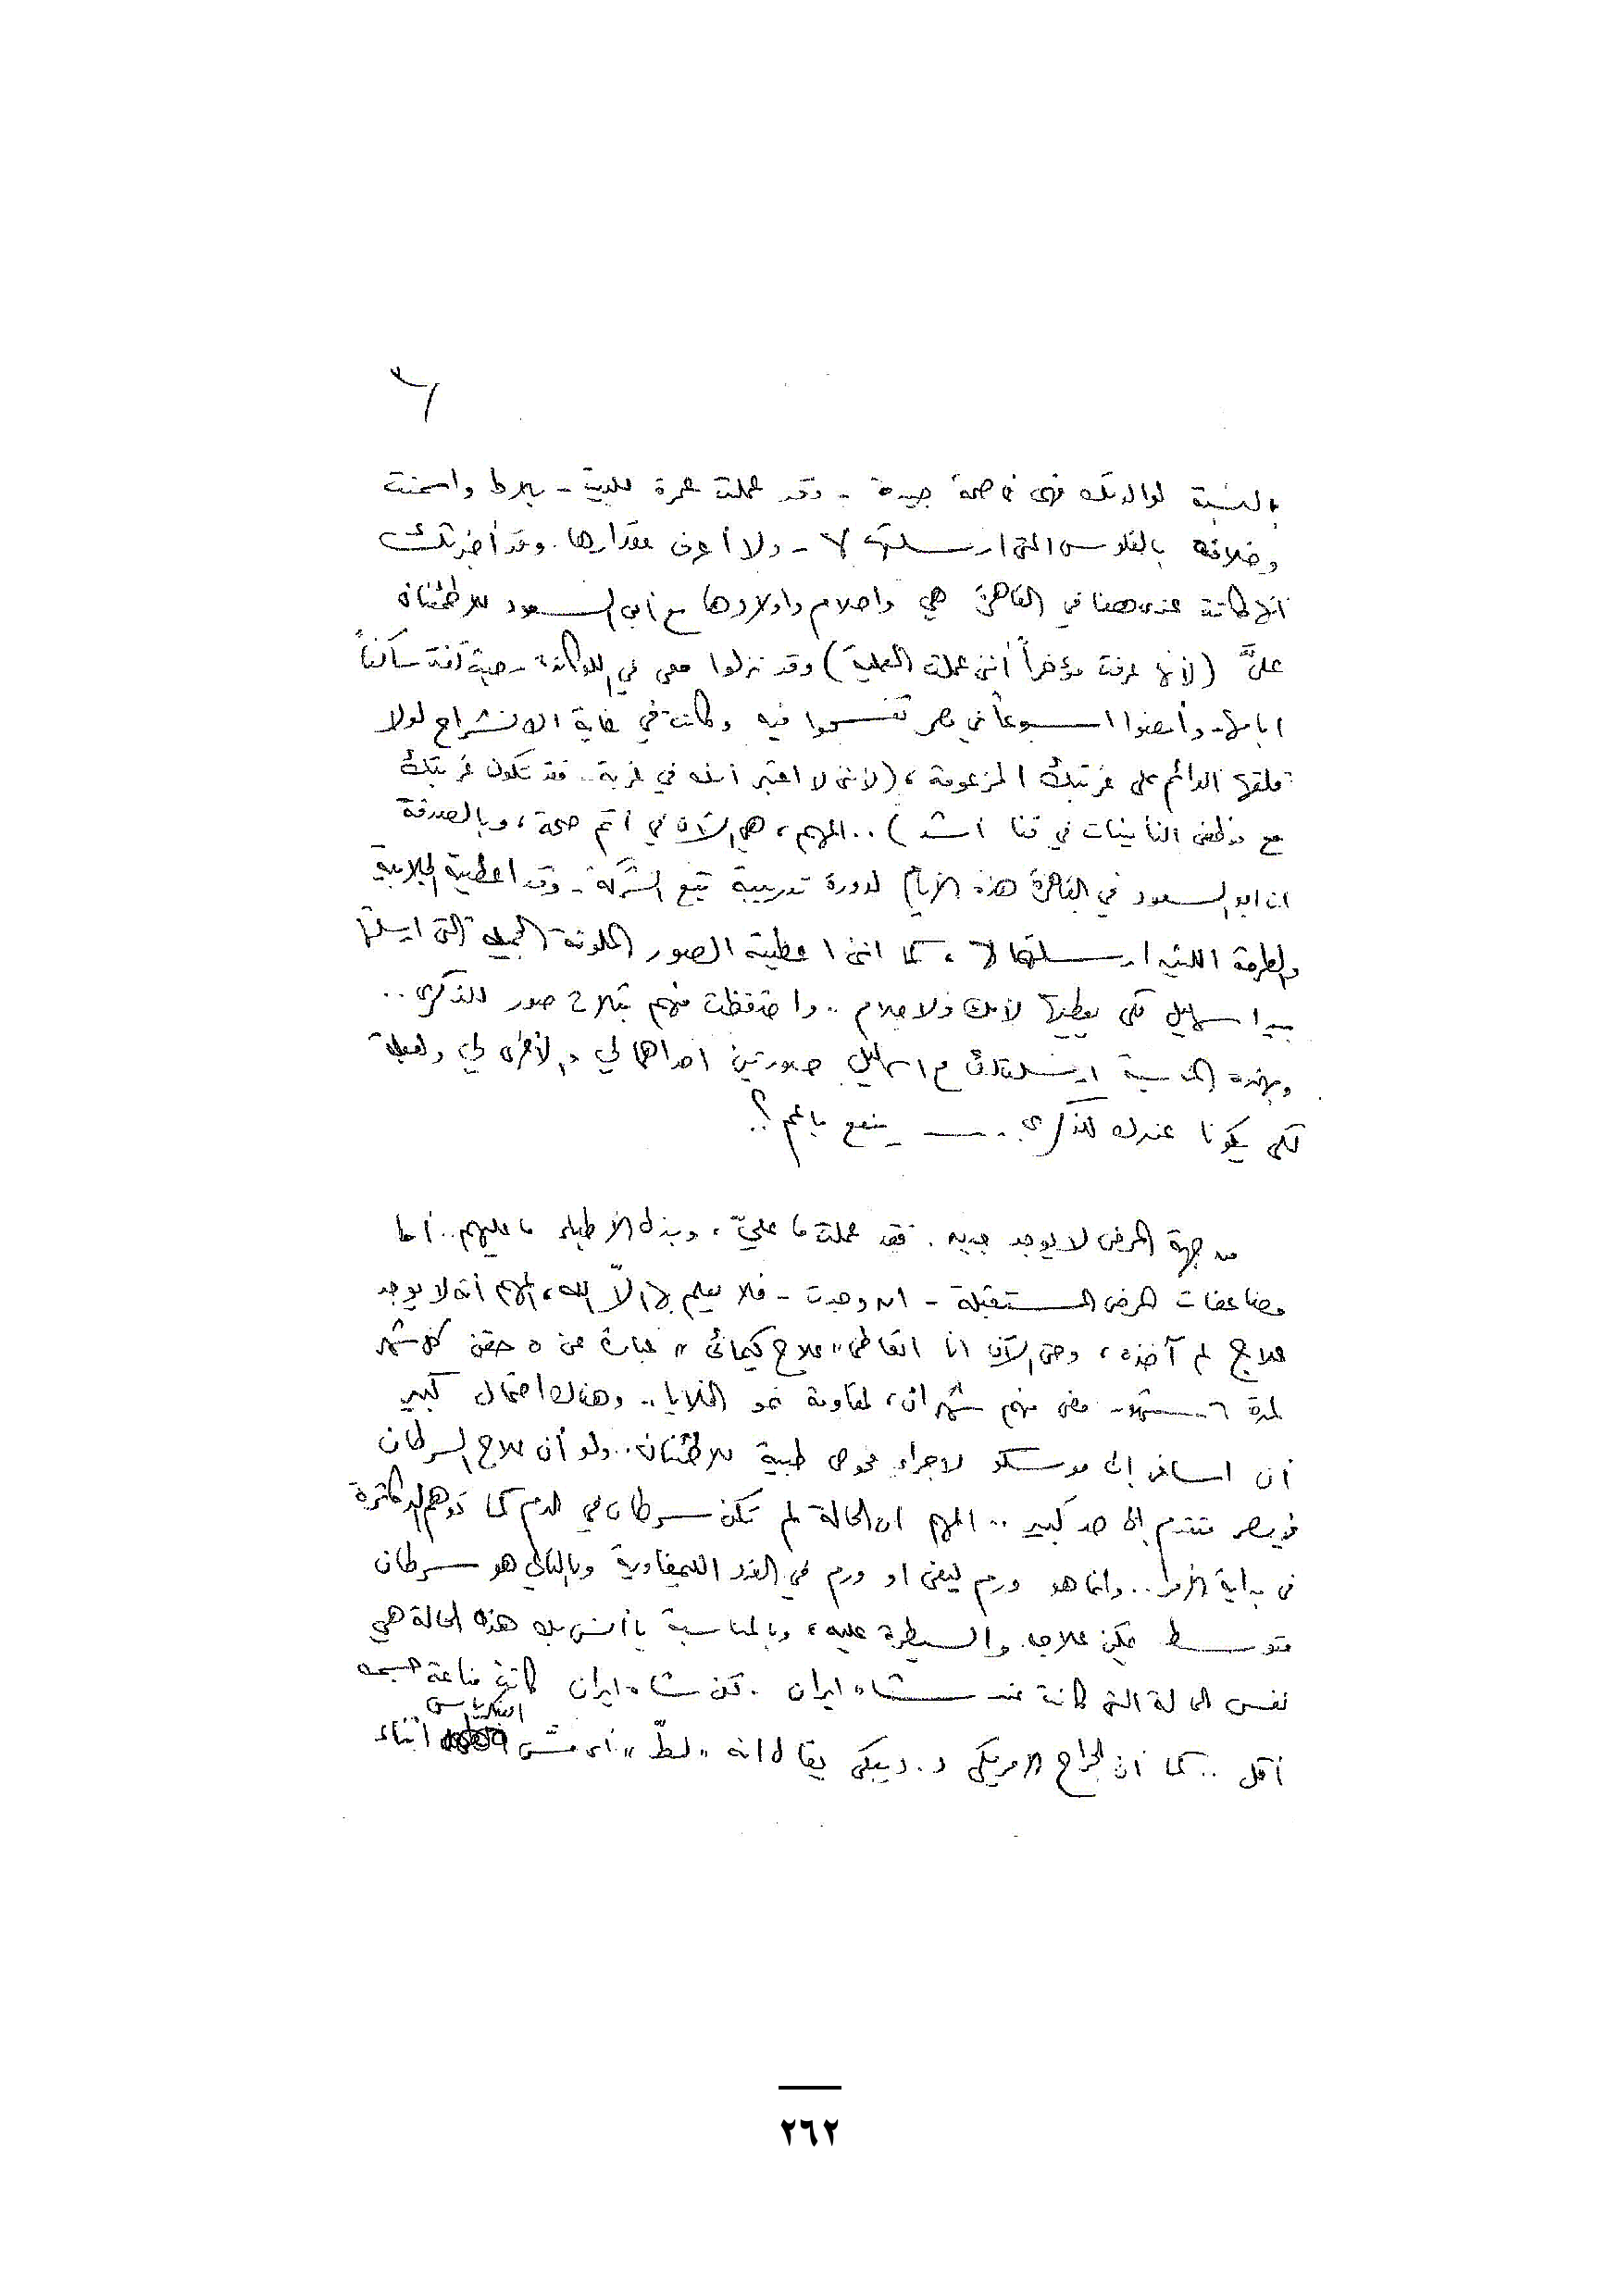 ٦
بالنسبة لوالدتك فهى فى صحة جيدة - وقد عملت عمرة للبيت - بلاط واسمنت
وخلافه بالفلوس التى ارسلتها لها - ولا أعرف مقدارها. وقد أخبرتك
انها كانت عندى هنا في القاهرة هي واحلام واولادها مع أبى السعود للاطمئنان
عليَّ (لأنها عرفت مؤخراً أننى عملت العملية) وقد نزلوا معى في اللوكاندة - حيث كنت ساكناً
ايامها - وأمضوا اسبوعاً في مصر تفسحوا فيه وكانت في غاية الانشراح لولا
قلقها الدائم على غربتك المزعومة، (لأننى لا اعتبر أنك في غربة.. فقد تكون غربتك
مع موظفى التأمينات في قنا أشد).. المهم، هى الآن في أتم صحة، وبالصدفة
ان ابو السعود في القاهرة هذه الأيام لدورة تدريبية تبع الشركة - وقد اعطيته الجلابية
والطرحة اللتين ارسلتهما لها، كما اننى اعطيته الصور الملونة الجميلة التى ارسلتها
بيد اسماعيل لكى يعطيها لأمك ولاحلام.. واحتفظت منهم بثلاث صور للذكرى..
وبهذه المناسبة ارسلت لك مع اسماعيل صورتين احداهما لي والأخرى لي ولعبلة
لكى يكونا عندك للذكرى.. ينفع يا عم؟
من جهة المرض لا يوجد جديد. فقد عملت ما عليّ، وبذل الأطباء ما عليهم.. أما
مضاعفات المرض المستقبلة - ان وجدت - فلا يعلم بها الاّ الله، المهم أنه لا يوجد
علاج لم آخذه، وحتى الآن انا اتعاطى "علاج كيمائى" عبارة عن ٥ حقن كل شهر
لمدة ٦ شهور - مضى منهم شهران، لمقاومة نمو الخلايا.. وهناك احتمال كبير
أن اسافر إلى موسكو لاجراء فحوص طبية للاطمئنان.. ولو أن علاج السرطان
في مصر متقدم إلى حد كبير.. المهم ان الحالة لم تكن سرطان في الدم كما توهم الدكاترة
فى بداية الأمر.. وانما هو ورم ليفى او ورم في الغدد الليمفاوية وبالتالي هو سرطان
متوسط يمكن علاجه والسيطرة عليه، وبالمناسبة يا أنس بك هذه الحالة هي
نفس الحالة التى كانت عند شاه ايران. لكن شاه ايران كانت مناعة جسمه
أقل.. كما أن الجراح الامريكى د. ديبكى يقال انه "لطّ" أى مسّ البنكرياس أثناء
٢٦٢